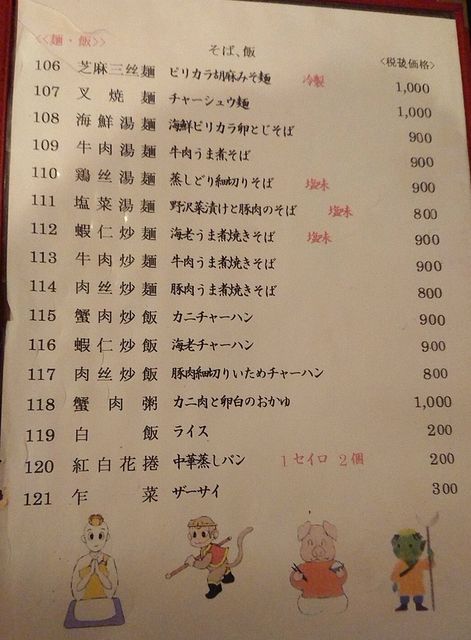 <<麺・飯>>
そば、飯
<税抜価格>
106 芝麻三丝麺 ピリカラ胡麻みそ麺 冷製 1,000
107 叉焼麺 チャーシュウ麺 1,000
108 海鮮湯麺 海鮮ピリカラ卵とじそば 900
109 牛肉湯麺 牛肉うま煮そば 900
110 鶏丝湯麺 蒸しどり細切りそば 塩味 900
111 塩菜湯麺 野沢菜漬けと豚肉のそば 塩味 800
112 蝦仁炒麺 海老うま煮焼きそば 塩味 900
113 牛肉炒麺 牛肉うま煮焼きそば 900
114 肉丝炒麺 豚肉うま煮焼きそば 800
115 蟹肉炒飯 カニチャーハン 900
116 蝦仁炒飯 海老チャーハン 900
117 肉丝炒飯 豚肉細切りいためチャーハン 800
118 蟹肉粥 カニ肉と卵白のおかゆ 1,000
119 白飯 ライス 200
120 紅白花捲 中華蒸しパン 1セイロ 2個 200
121 乍菜 ザーサイ 300